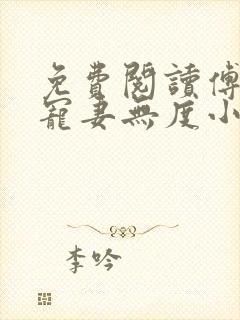 免費閱讀傅
寵妻無度小
李吟